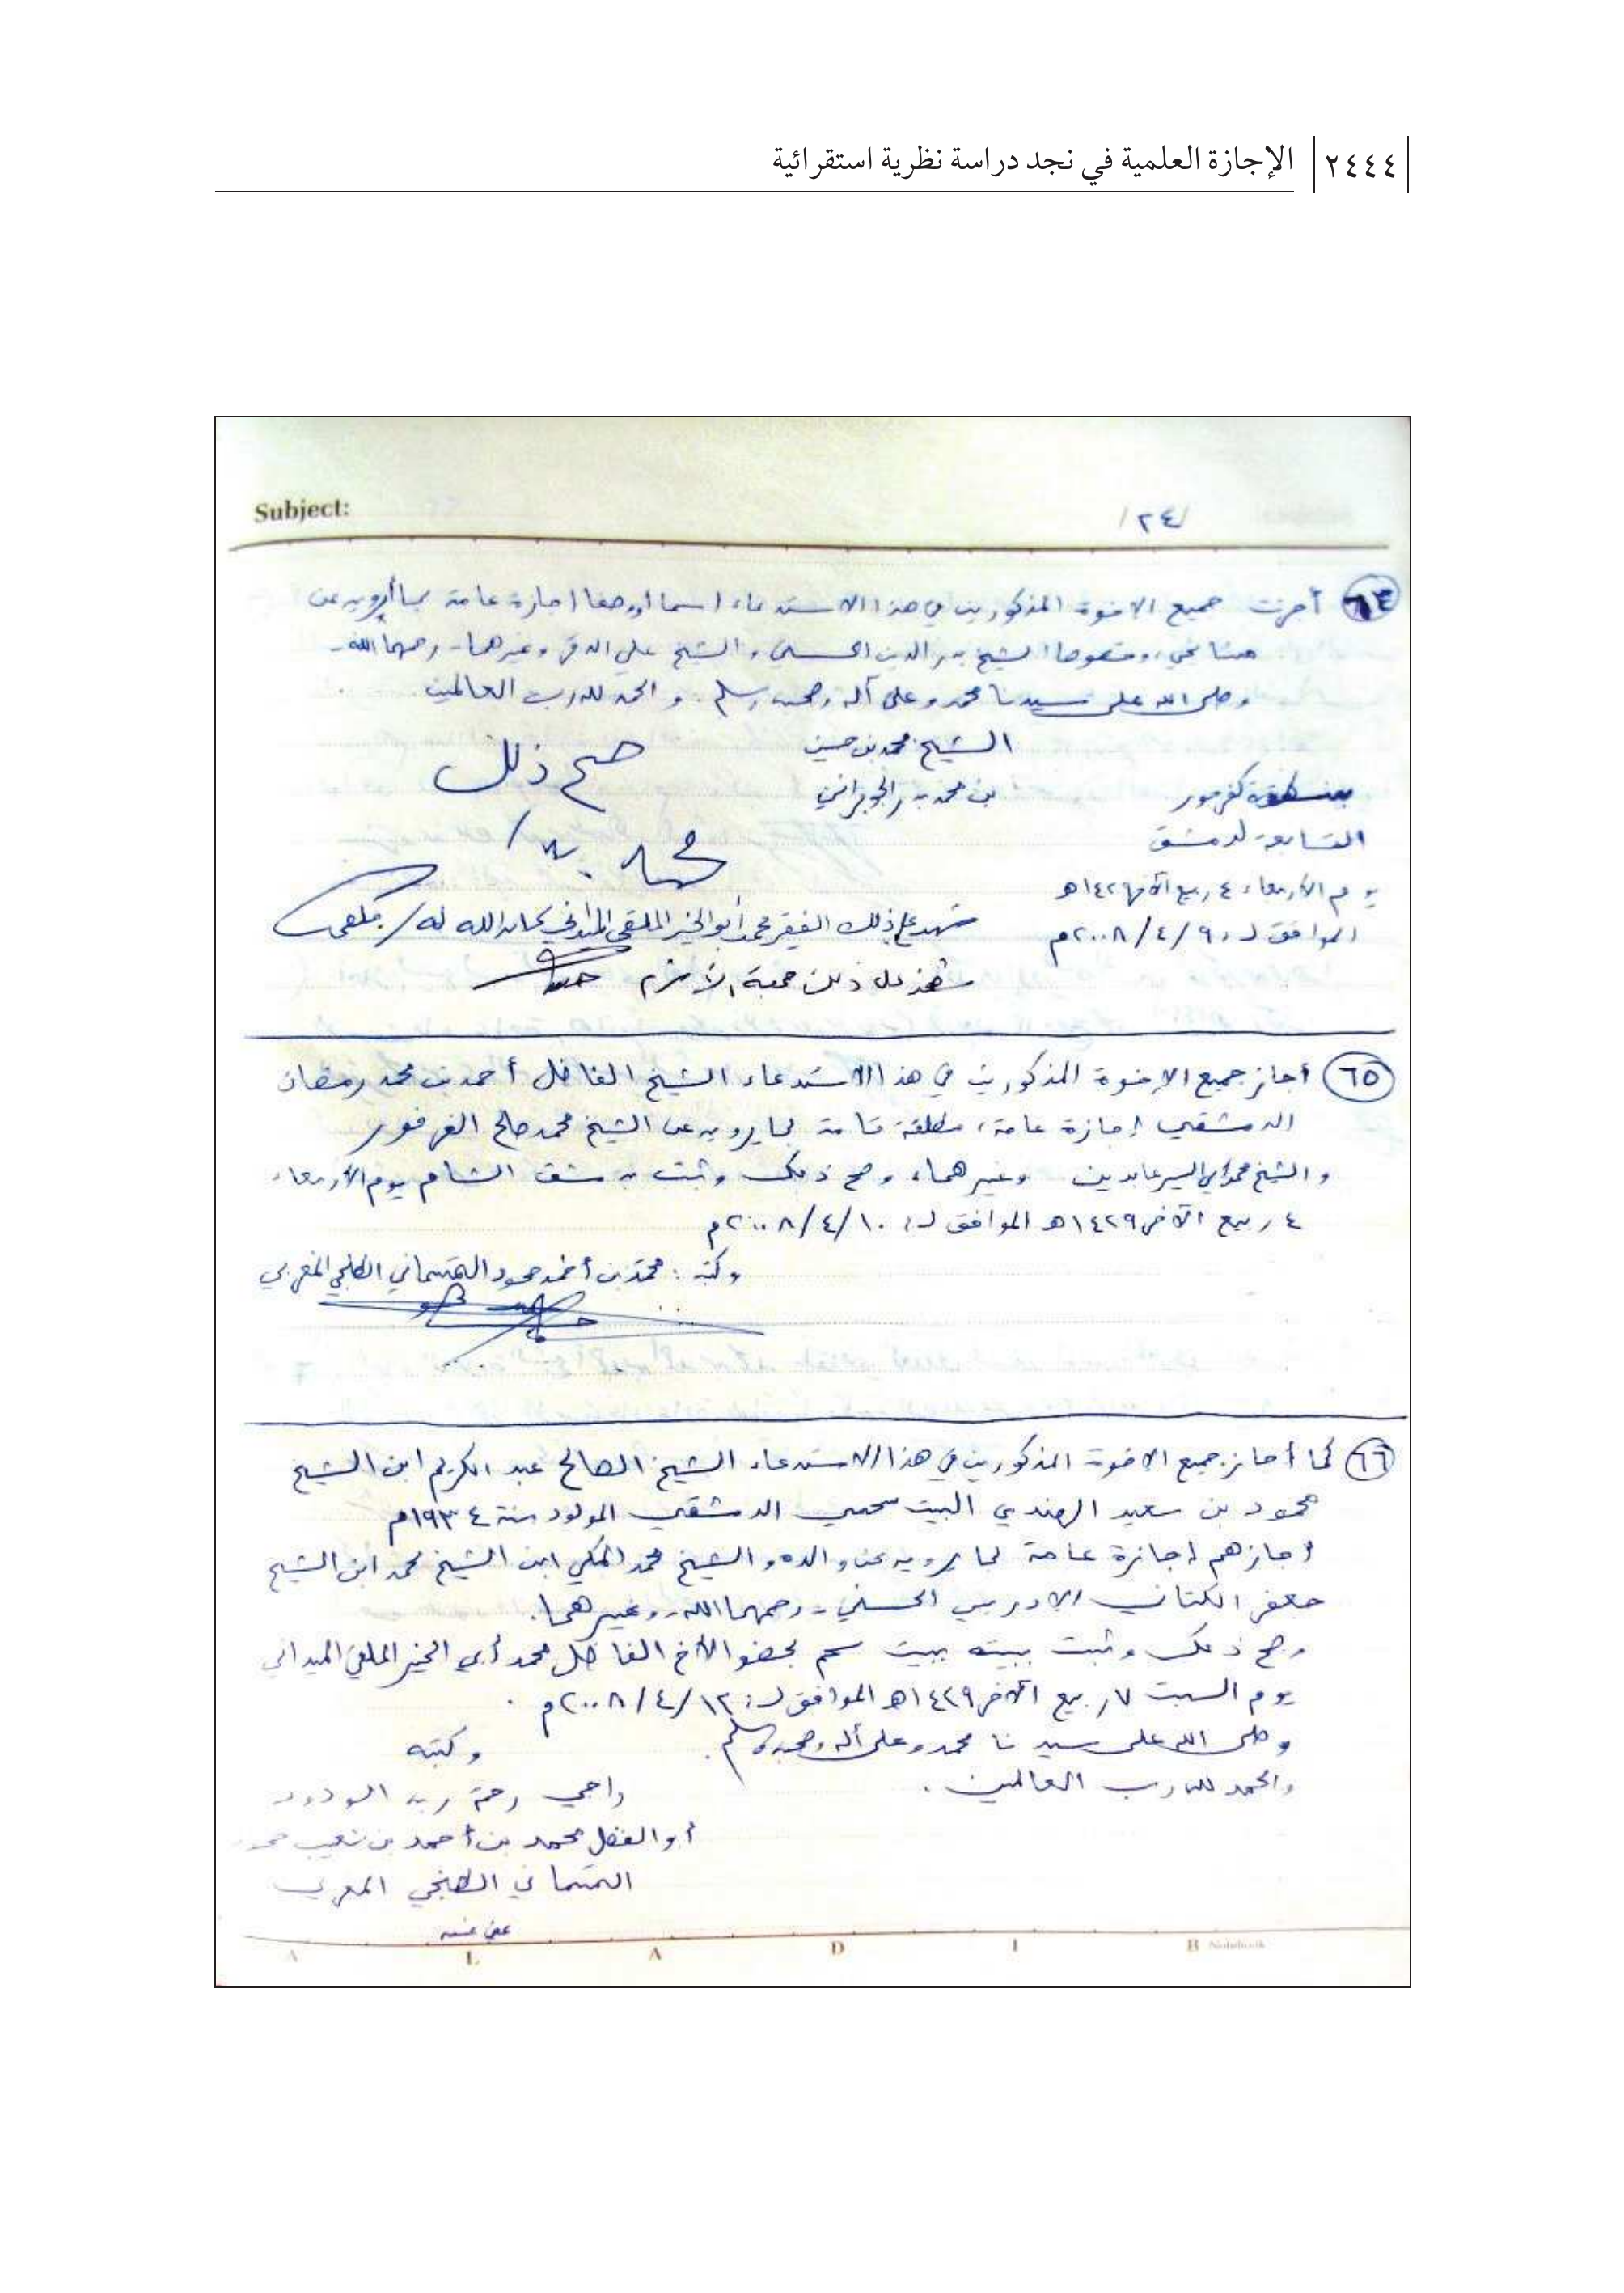 ٢٤٤٤ الإجازة العلمية في نجد دراسة نظرية استقرائية
Subject:
/٢٤/
٦٤ أجزت جميع الاخوة المذكورين في هذا الاستدعاء اجازة عامة بما أرويه عن
مشائخي، وخصوصا الشيخ بدر الدين الحسني، والشيخ علي الدقر وغيرهما - رحمهما الله -
وصلى الله على سيدنا محمد وعلى آله وصحبه وسلم. والحمد لله رب العالمين
الشيخ محمد بن حسين
صح ذلك
بن محمد بدر
كفرحور
التابعة لدمشق
محمد بدر
يوم الأربعاء ٤ ربيع الآخر ١٤٢٩هـ
شهد على ذلك الفقير محمد أبو الخير الملقي الميداني كان الله له / ملقي
الموافق لـ: ٩/٤/٢٠٠٨م
شهد على ذلك جمعة الأشرم
٦٥ أجاز جميع الإخوة المذكورين في هذا الاستدعاء الشيخ الفاضل أحمد بن محمد رمضان
الدمشقي إجازة عامة، مطلقة تامة لما يرويه عن الشيخ محمد صالح الفرفور
والشيخ محمد أبي اليسر عابدين وغيرهما، وصح ذلك وثبت بدمشق الشام يوم الأربعاء
٤ ربيع الآخر ١٤٢٩هـ الموافق لـ: ١٠/٤/٢٠٠٨م
وكتبه: محمد بن أحمد محمود التمسماني الطنجي المغربي
٦٦ كما أجاز جميع الاخوة المذكورين في هذا الاستدعاء الشيخ الصالح عبد الكريم ابن الشيخ
محمود بن سعيد الهندي البيت سحمي الدمشقي المولود سنة ١٩٣٤م
أجازهم إجازة عامة لما يرويه عن والده والشيخ محمد المكي ابن الشيخ محمد ابن الشيخ
جعفر الكتاني الادريسي الحسني - رحمهما الله - وغيرهما.
وصح ذلك وثبت ببيته ببيت سحم بحضور الأخ الفاضل محمد أبي الخير الملقي الميداني
يوم السبت ٧ ربيع الآخر ١٤٢٩هـ الموافق لـ: ١٣/٤/٢٠٠٨م.
وصلى الله على سيدنا محمد وعلى آله وصحبه وسلم.
وكتبه
والحمد لله رب العالمين.
راجي رحمة ربه الودود
أبو الفضل محمد بن أحمد بن شعيب محمود
التمسماني الطنجي المغربي
عفي عنه
A L A D I B Notebook